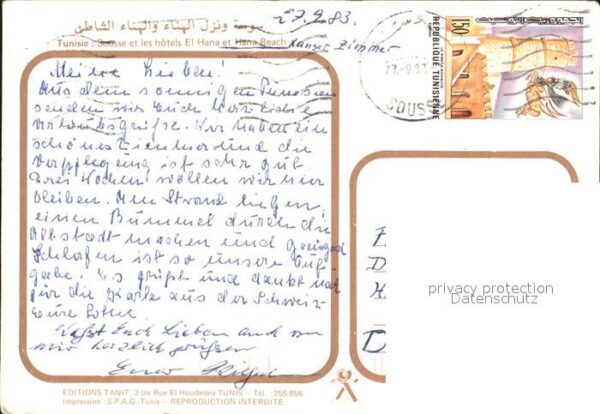 سوسة ونزل الهناء والهناء الشاطئ
27.9.83.
Tunisie : Sousse et les hôtels El Hana et Hana Beach
unser Zimmer
Meine Lieben!
Aus dem sonnigen Tunesien
senden wir Euch herzliche
Urlaubsgrüße. Wir haben ein
schönes Zimmer und die
Verpflegung ist sehr gut.
Drei Wochen wollen wir hier
bleiben. Am Strand liegen,
einen Bummel durch die
Altstadt machen und genügend
Schlafen ist so unsere Auf-
gabe. Es grüßt und dankt
für die Karte aus der Schweiz
Eure
Laßt Euch Lieben auch von
mir herzlich grüßen
Euer
150
REPUBLIQUE TUNISIENNE
SOUSSE
E
D
H
D
privacy protection
Datenschutz
EDITIONS TANIT, 3 bis Rue El Houdeibia TUNIS - Tél. : 255.656
Impression : S.P.A.G. Tunis - REPRODUCTION INTERDITE